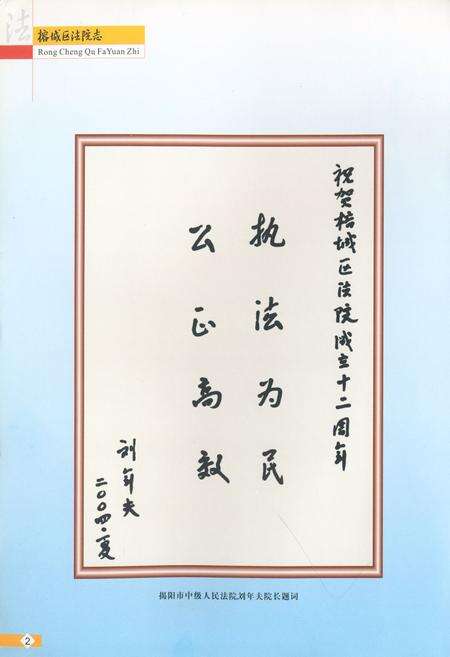 法
榕城区法院志
Rong Cheng Qu FaYuan Zhi
祝贺榕城区法院成立十二周年
执法为民
公正高效
刘年夫
二〇〇四·夏
揭阳市中级人民法院刘年夫院长题词
2